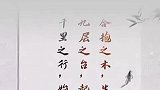 合抱之木，生
九层之台，起
千里之行，始